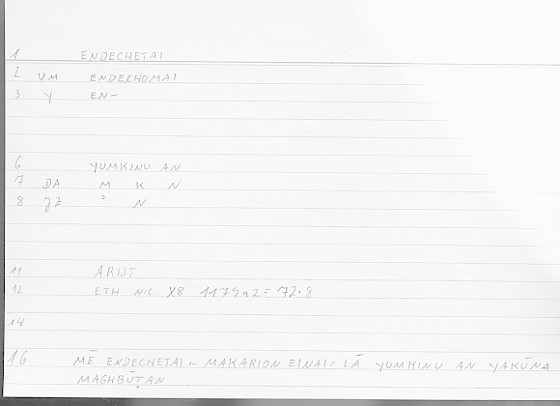 1 ENDECHETAI
2 VM ENDECHOMAI
3 Y EN-
6 YUMKINU AN
7 DA M K N
8 JZ ᵓ N
11 ARIST
12 ETH NIC X8 1179a2 = 72.8
14
16 MĒ ENDECHETAI ... MAKARION EINAI = LĀ YUMKINU AN YAKŪNA
MAGHBŪṬAN